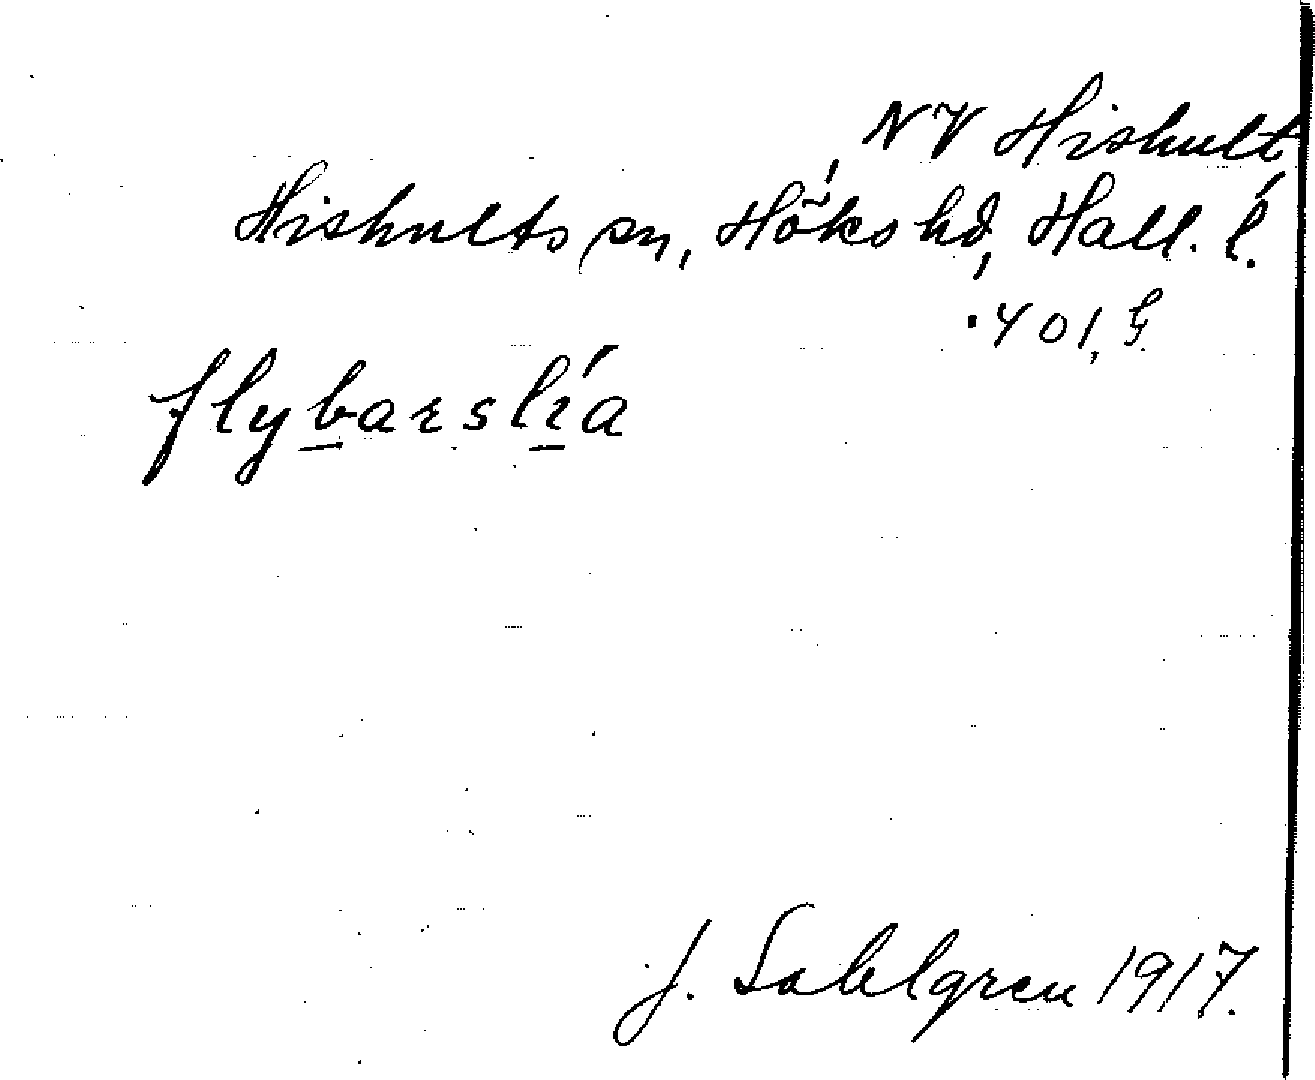 NV Hishult
Hishults sn, Höks hd, Hall. l.
401, G
flybarslia
J. Sahlgren 1917.